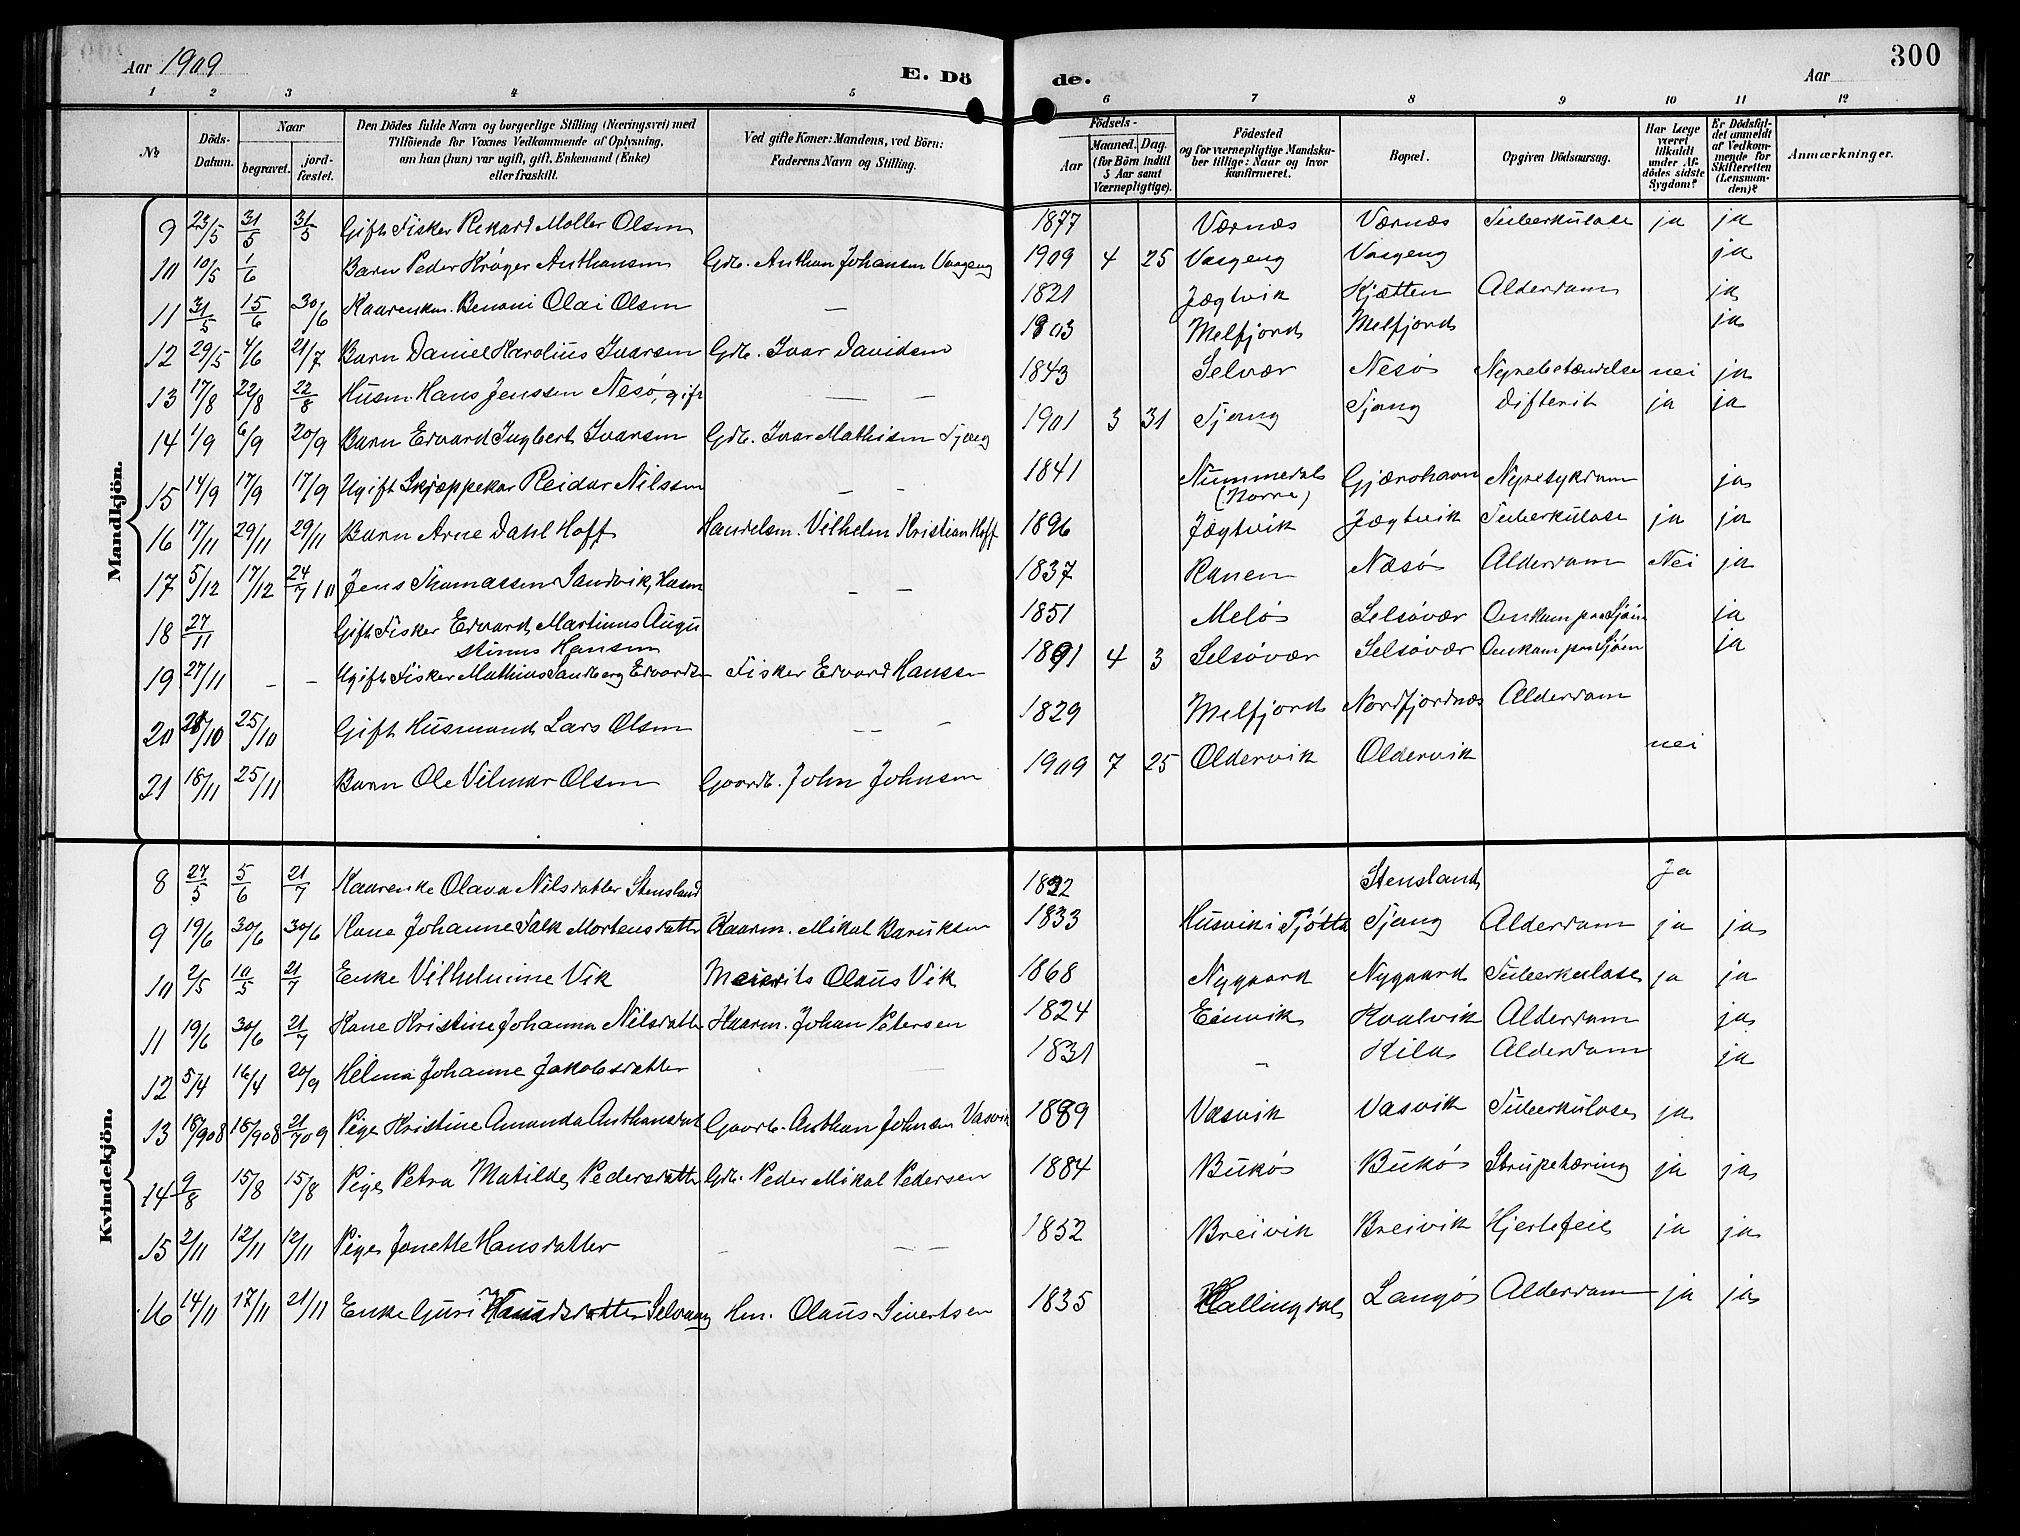 Aar 1909 E. Dö de. Aar 300
1 2 3 4 5 6 7 8 9 10 11 12
No. Döds-Datum. Naar begravet. jordfæstet. Den Dödes fulde Navn og borgerlige Stilling (Næringsvei) med Tilföiende for Voxnes Vedkommende af Oplysning, om han (hun) var ugift, gift, Enkemand (Enke) eller fraskilt. Ved gifte Koner: Mandens, ved Börn: Faderens Navn og Stilling. Födsels- Aar Maaned. Dag. (for Börn indtil 5 Aar samt Værnepligtige). Födested og for værnepligtige Mandskaber tillige: Naar og hvor konfirmeret. Bopæl. Opgiven Dödsaarsag. Har Læge været tilkaldt under Afdödes sidste Sygdom? Er Dödsfaldet anmeldt af Vedkommende for Skifteretten (Lensmanden)? Anmærkninger.
Mandkjön.
9 23/5 31/5 31/5 Gift Fisker Rikard Møller Olsen 1877 Værnæs Værnæs Tuberkulose ja ja
10 10/5 1/6 Barn Peder Krøger Anthonsen Gdb. Anthon Johansen Vaageng 1909 4 25 Vasgeng Vasgeng ja
11 31/5 15/6 30/6 Kaarenkm. Benoni Olai Olsen — 1821 Jægtvik Kjætten Alderdom ja
12 29/5 4/6 21/7 Barn Daniel Karolius Ivarsen Gdb. Ivar Davidsen 1903 Melfjord Melfjord ja
13 17/8 22/8 22/8 Husm. Hans Jenssen Nesø, gift — — 1843 Selvær Nesø Nyrebetændelse nei ja
14 1/9 6/9 20/9 Barn Edvard Ingbert Ivarsen Gdb. Ivar Mathisen Tjong 1901 3 31 Tjong Tjong Difterit ja ja
15 14/9 17/9 17/9 Ugift Skjæppekar Reidar Nilssen — — 1841 Nummedal (Norra) Gjærøhavn Nyresykdom ja
16 17/11 29/11 29/11 Barn Arne Dahl Hoff Handelsm. Vilhelm Kristian Hoff 1896 Jægtvik Jægtvik Tuberkulose ja ja
17 5/12 17/12 24/7 10 Jens Thomassen Sandvik, Husm — — 1837 Ranen Næsø Alderdom Nei ja
18 27/11 Gift Fisker Edvard Martinus Augu
stinus Hansen 1851 Melø Selsøvær Omkom paa Sjøen ja
19 27/11 — — Ugift Fisker Mathias Sandberg Edvardsen Fisker Edvard Hanssen 1891 4 3 Selsøvær Selsøvær Omkom paa Sjøen ja
20 /10 25/10 Gift Husmand Lars Olsen — — — 1829 Melfjord Nordfjordnæs Alderdom
21 18/11 25/11 Barn Ole Vilmar Olsen Gaardb. John Johnsen 1909 7 25 Oldervik Oldervik nei
Kvindekjön.
8 27/5 5/6 21/7 Kaarenke Olava Nilsdatter Stensland Stensland Ja
9 19/6 30/6 30/6 Kone Johanne Falk Mortensdatter Kaarm. Mikal Baruksen 1833 Husvik i Tjøtta Tjong Alderdom ja ja
10 2/5 10/5 21/7 Enke Vilhelmine Vik Olaus Vik 1868 Nygaard Nygaard Tuberkulose ja ja
11 19/6 30/6 21/7 Kone Kristine Johanna Nilsdatter Kaarm. Johan Petersen 1824 Eimvik Kvalvik Alderdom ja
12 5/4 16/4 20/9 Helma Johanne Jakobsdatter 1831 — Kila Alderdom ja
13 18/908 18/908 21/709 Pige Kristine Amanda Anthonsdat Gaardb. Anthon Johnsen Vasvik 1889 Vasvik Vasvik Tuberkulose ja
14 9/8 15/8 15/8 Pige Petra Matilde Pedersdatter Gdb. Peder Mikal Pedersen 1884 Bukø Bukø Strupetæring ja ja
15 2/11 12/11 12/11 Pige Jonette Hansdatter — — — 1852 Breivik Breivik Hjertefeil ja ja
16 14/11 17/11 21/11 Enke Guri Selvaag Hm. Olaus Sivertsen 1835 Hallingdal Langø Alderdom ja ja